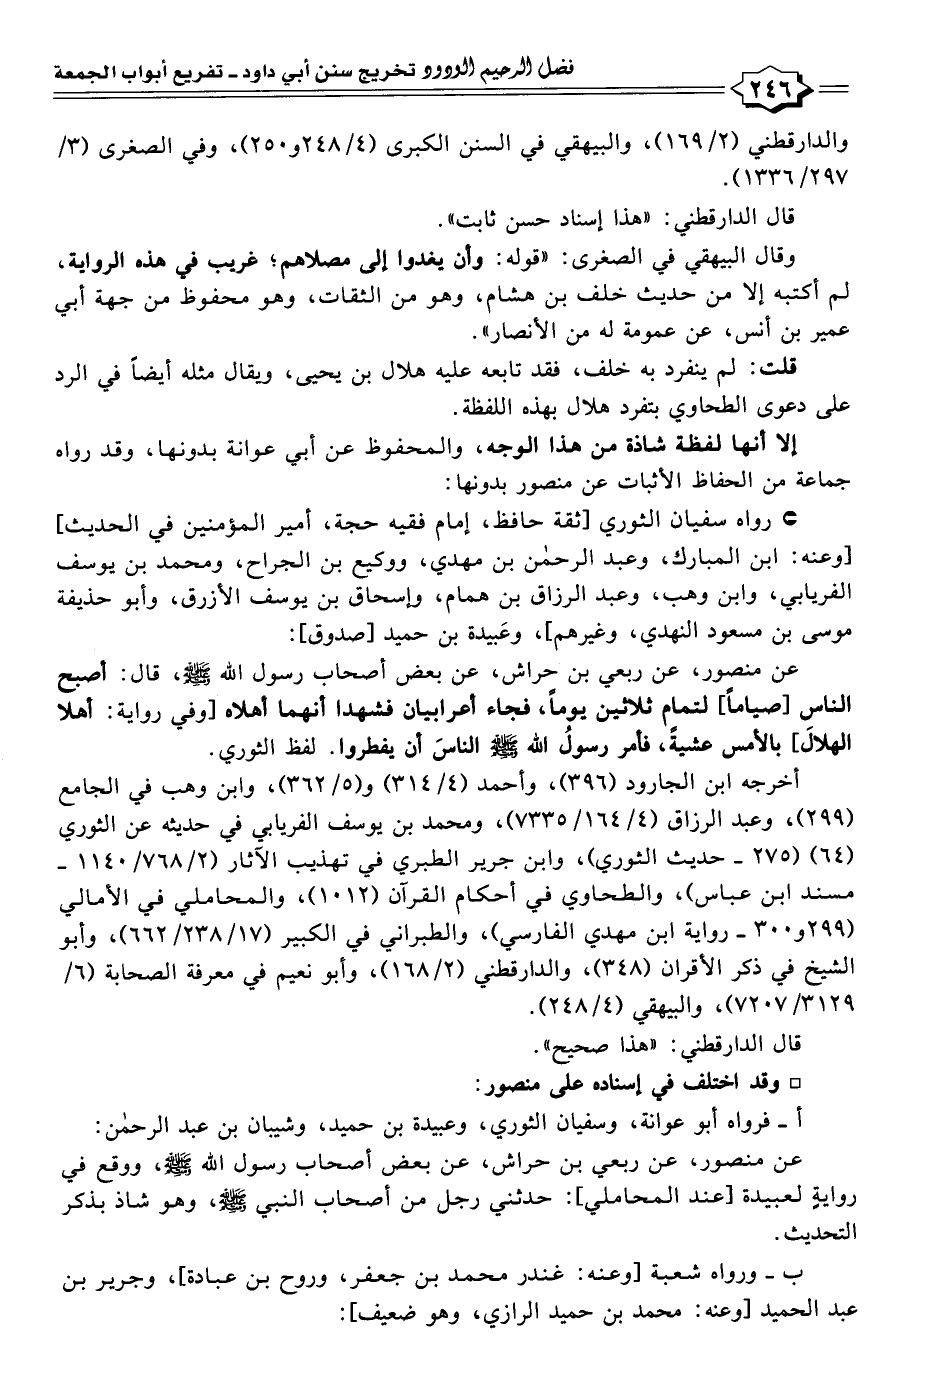 فضل الرحيم الودود تخريج سنن أبي داود ـ تفريع أبواب الجمعة
٢٤٦
والدارقطني (٢/ ١٦٩)، والبيهقي في السنن الكبرى (٤/ ٢٤٨ و٢٥٠)، وفي الصغرى (٣/
٢٩٧/ ١٣٣٦).
قال الدارقطني: «هذا إسناد حسن ثابت».
وقال البيهقي في الصغرى: «قوله: وأن يغدوا إلى مصلاهم؛ غريب في هذه الرواية،
لم أكتبه إلا من حديث خلف بن هشام، وهو من الثقات، وهو محفوظ من جهة أبي
عمير بن أنس، عن عمومة له من الأنصار».
قلت: لم ينفرد به خلف، فقد تابعه عليه هلال بن يحيى، ويقال مثله أيضاً في الرد
على دعوى الطحاوي بتفرد هلال بهذه اللفظة.
إلا أنها لفظة شاذة من هذا الوجه، والمحفوظ عن أبي عوانة بدونها، وقد رواه
جماعة من الحفاظ الأثبات عن منصور بدونها:
رواه سفيان الثوري [ثقة حافظ، إمام فقيه حجة، أمير المؤمنين في الحديث]
[وعنه: ابن المبارك، وعبد الرحمٰن بن مهدي، ووكيع بن الجراح، ومحمد بن يوسف
الفريابي، وابن وهب، وعبد الرزاق بن همام، وإسحاق بن يوسف الأزرق، وأبو حذيفة
موسى بن مسعود النهدي، وغيرهم]، وعَبيدة بن حميد [صدوق]:
عن منصور، عن ربعي بن حراش، عن بعض أصحاب رسول الله ﷺ، قال: أصبح
الناس [صياماً] لتمام ثلاثين يوماً، فجاء أعرابيان فشهدا أنهما أهلاه [وفي رواية: أهلا
الهلالَ] بالأمس عشيةً، فأمر رسولُ الله ﷺ الناسَ أن يفطروا. لفظ الثوري.
أخرجه ابن الجارود (٣٩٦)، وأحمد (٤/ ٣١٤) و(٥/ ٣٦٢)، وابن وهب في الجامع
(٢٩٩)، وعبد الرزاق (٤/ ١٦٤/ ٧٣٣٥)، ومحمد بن يوسف الفريابي في حديثه عن الثوري
(٦٤) (٢٧٥ ـ حديث الثوري)، وابن جرير الطبري في تهذيب الآثار (٢/ ٧٦٨/ ١١٤٠ ـ
مسند ابن عباس)، والطحاوي في أحكام القرآن (١٠١٢)، والمحاملي في الأمالي
(٢٩٩ و٣٠٠ ـ رواية ابن مهدي الفارسي)، والطبراني في الكبير (١٧/ ٢٣٨/ ٦٦٢)، وأبو
الشيخ في ذكر الأقران (٣٤٨)، والدارقطني (٢/ ١٦٨)، وأبو نعيم في معرفة الصحابة (٦/
٣١٢٩/ ٧٢٠٧)، والبيهقي (٤/ ٢٤٨).
قال الدارقطني: «هذا صحيح».
□ وقد اختلف في إسناده على منصور:
أ ـ فرواه أبو عوانة، وسفيان الثوري، وعبيدة بن حميد، وشيبان بن عبد الرحمٰن:
عن منصور، عن ربعي بن حراش، عن بعض أصحاب رسول الله ﷺ، ووقع في
روايةٍ لعبيدة [عند المحاملي]: حدثني رجل من أصحاب النبي ﷺ، وهو شاذ بذكر
التحديث.
ب ـ ورواه شعبة [وعنه: غندر محمد بن جعفر، وروح بن عبادة]، وجرير بن
عبد الحميد [وعنه: محمد بن حميد الرازي، وهو ضعيف]: